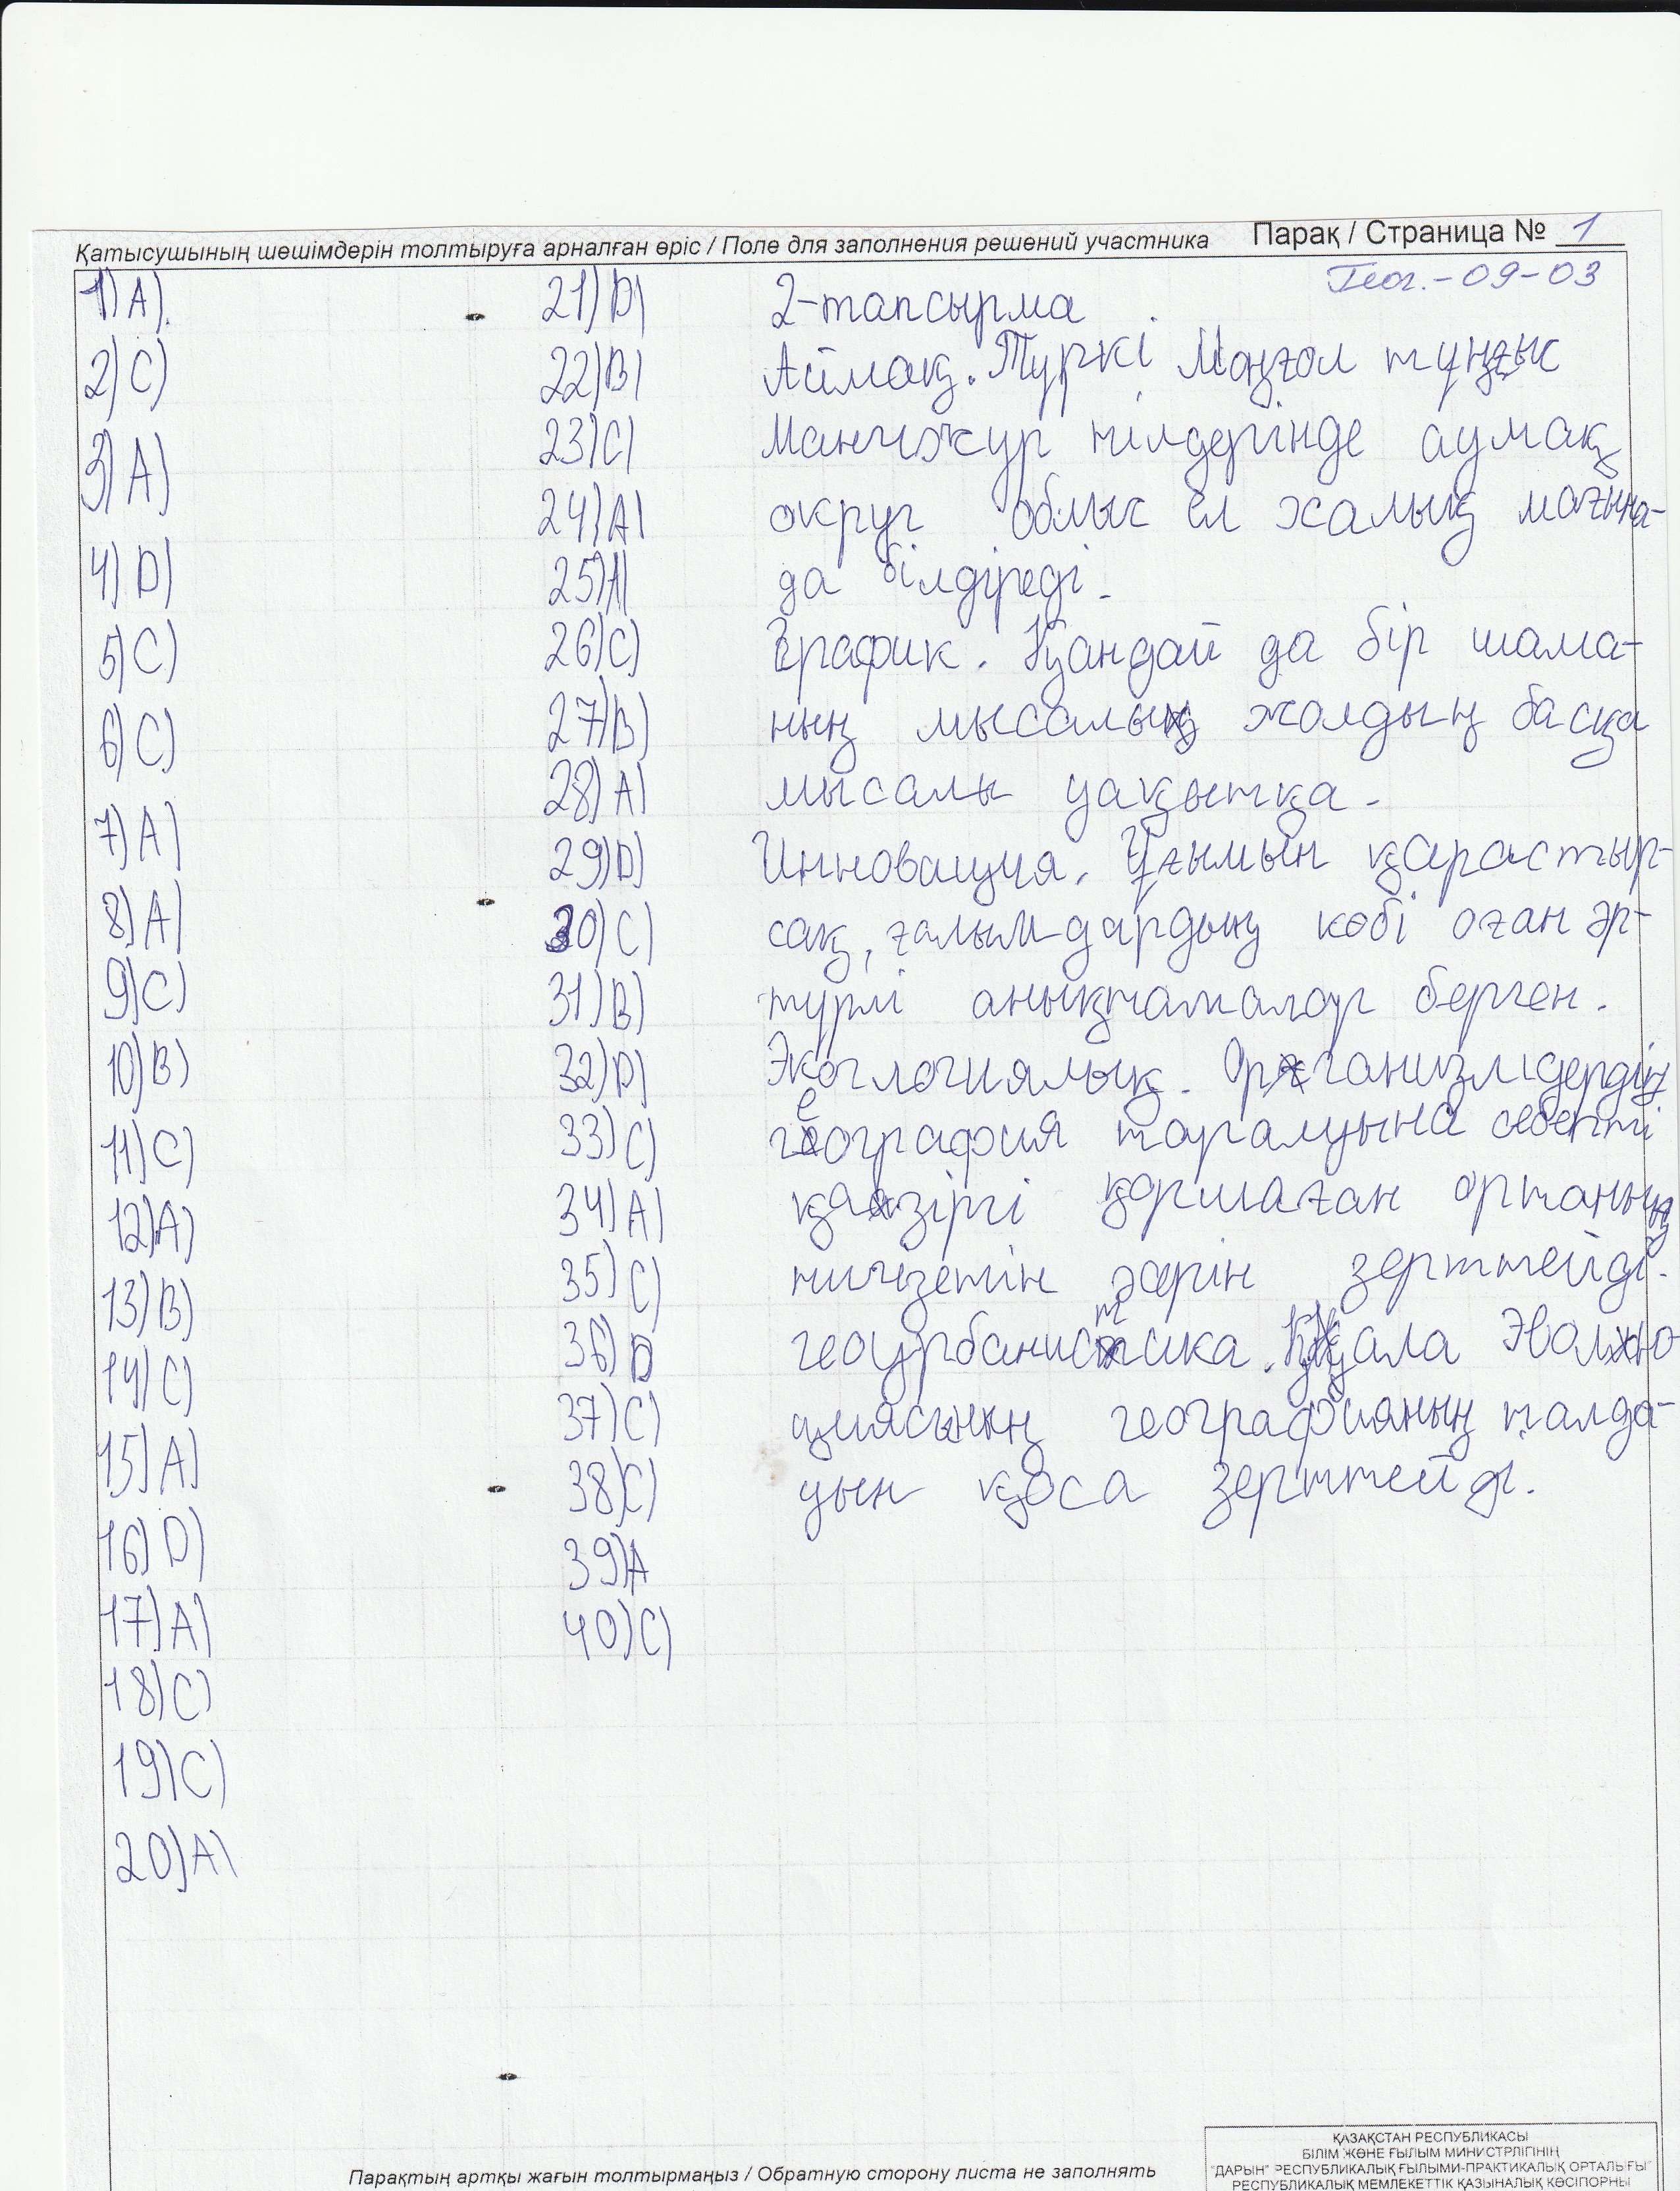 Қатысушының шешімдерін толтыруға арналған өріс / Поле для заполнения решений участника
Парақ / Страница № 1
Геог.-09-03
1) A)
2) C)
3) A)
4) D)
5) C)
6) C)
7) A)
8) A)
9) C)
10) B)
11) C)
12) A)
13) B)
14) C)
15) A)
16) D)
17) A)
18) C)
19) C)
20) A)
21) D)
22) B)
23) C)
24) A)
25) A)
26) C)
27) B)
28) A)
29) D)
30) C)
31) B)
32) D)
33) C)
34) A)
35) C)
36) D
37) C)
38) C)
39) A
40) C)
2-тапсырма
Аймақ. Түркі Моңғол тұңғыс
Манчжур тілдерінде аумақ
округ облыс ел халық мағына-
да білдіреді.
График. Қандай да бір шама-
ның мысалы жолдың басқа
мысалы уақытқа.
Инновация. Ұғымын қарастыр-
сақ, ғалымдардың көбі оған әр-
түрлі анықтамалар берген.
Экоглогиялық. Организмдердің
география таралуына себепті
қазіргі қоршаған ортаның
тигізетін әсерін зерттейді.
геоурбанистика. Қала Эволю-
циясының географияның талда-
уын қоса зерттейді.
Парақтың артқы жағын толтырмаңыз / Обратную сторону листа не заполнять
ҚАЗАҚСТАН РЕСПУБЛИКАСЫ
БІЛІМ ЖӘНЕ ҒЫЛЫМ МИНИСТРЛІГІНІҢ
"ДАРЫН" РЕСПУБЛИКАЛЫҚ ҒЫЛЫМИ-ПРАКТИКАЛЫҚ ОРТАЛЫҒЫ"
РЕСПУБЛИКАЛЫҚ МЕМЛЕКЕТТІК ҚАЗЫНАЛЫҚ КӘСІПОРНЫ